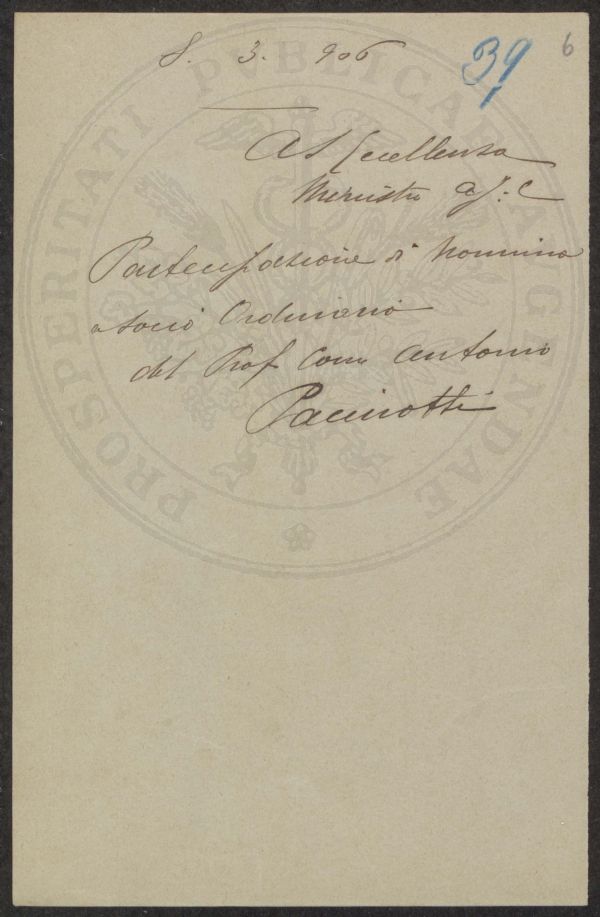 8. 3. 906
39
6
A S Eccellenza
Ministro A. I. C
Partecipazione di nomina
a socio Ordinario
del Prof Com Antonio
Pacinotti
PROSPERITATI PVBLICAE AVGENDAE